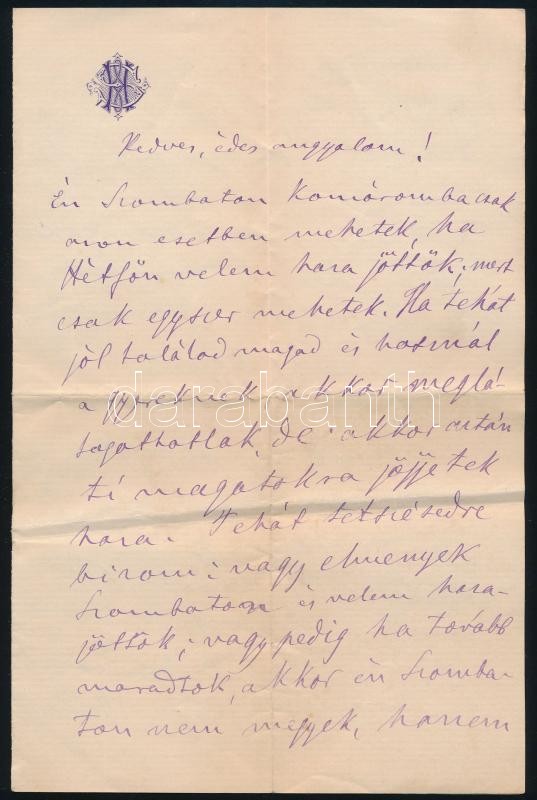 Kedves, édes angyalom!
Én Szombaton Komáromba csak
azon esetben mehetek, ha
Hétfőn velem haza jöttök, mert
csak egyszer mehetek. Ha tehát
jól találod magad és használ
a gyereknek, akkor meglá-
togathatlak, de akkor aztán
ti magatokra jöjjetek
haza. Tehát tetszésedre
bízom: vagy elmenyek
Szombaton és velem haza-
jöttök, vagy pedig ha tovább
maradtok, akkor én Szomba-
ton nem megyek, hanem
darabanth